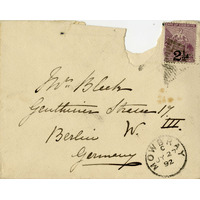 2½
Mrs Bleek
Genthiner Strasse 17.
III.
Berlin W.
Germany
MOWBRAY
JY 2
92